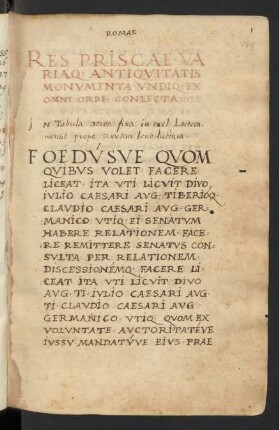 ROMAE
RES PRISCAE VA
RIAQ· ANTIQVITATIS
MONVMENTA VNDIQ· EX
OMNI ORBE CONLECTA
in Tabula aenea fixa in eccl. Lateran
nensi prope arcam benedictam
FOEDVSVE QVOM
QVIBVS VOLET FACERE
LICEAT· ITA VTI LICVIT DIVO
IVLIO CAESARI AVG· TIBERIOQ·
CLAVDIO CAESARI AVG· GER-
MANICO VTIQ· EI SENATVM
HABERE RELATIONEM· FACE-
RE REMITTERE SENATVS CON-
SVLTA PER RELATIONEM·
DISCESSIONEMQ· FACERE LI-
CEAT ITA VTI LICVIT DIVO
AVG· TI· IVLIO CAESARI AVG
TI· CLAVDIO CAESARI AVG
GERMANICO· VTIQ· QVOM EX
VOLVNTATE AVCTORITATEVE
IVSSV MANDATVVE EIVS PRAE